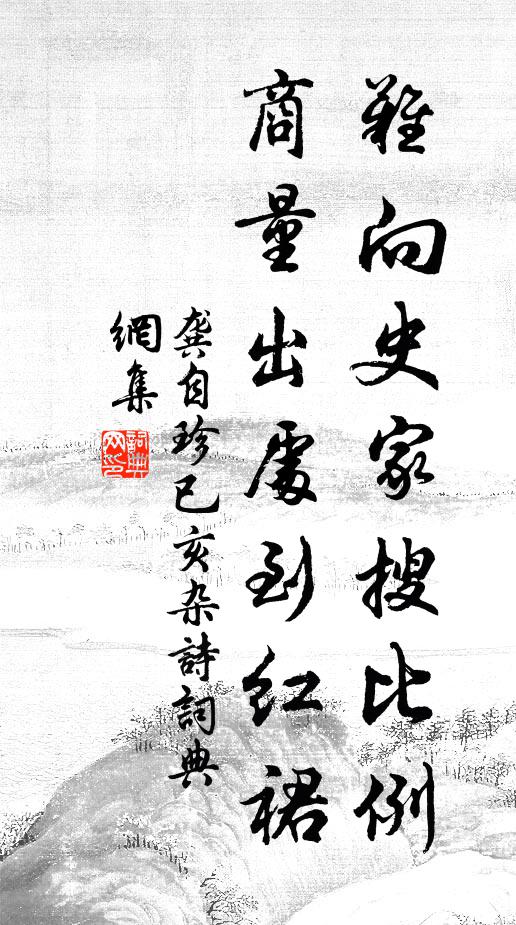 難向史家搜比例
商量出處到紅裙
龔自珍己亥杂詩詞典
網集
詞典
网印